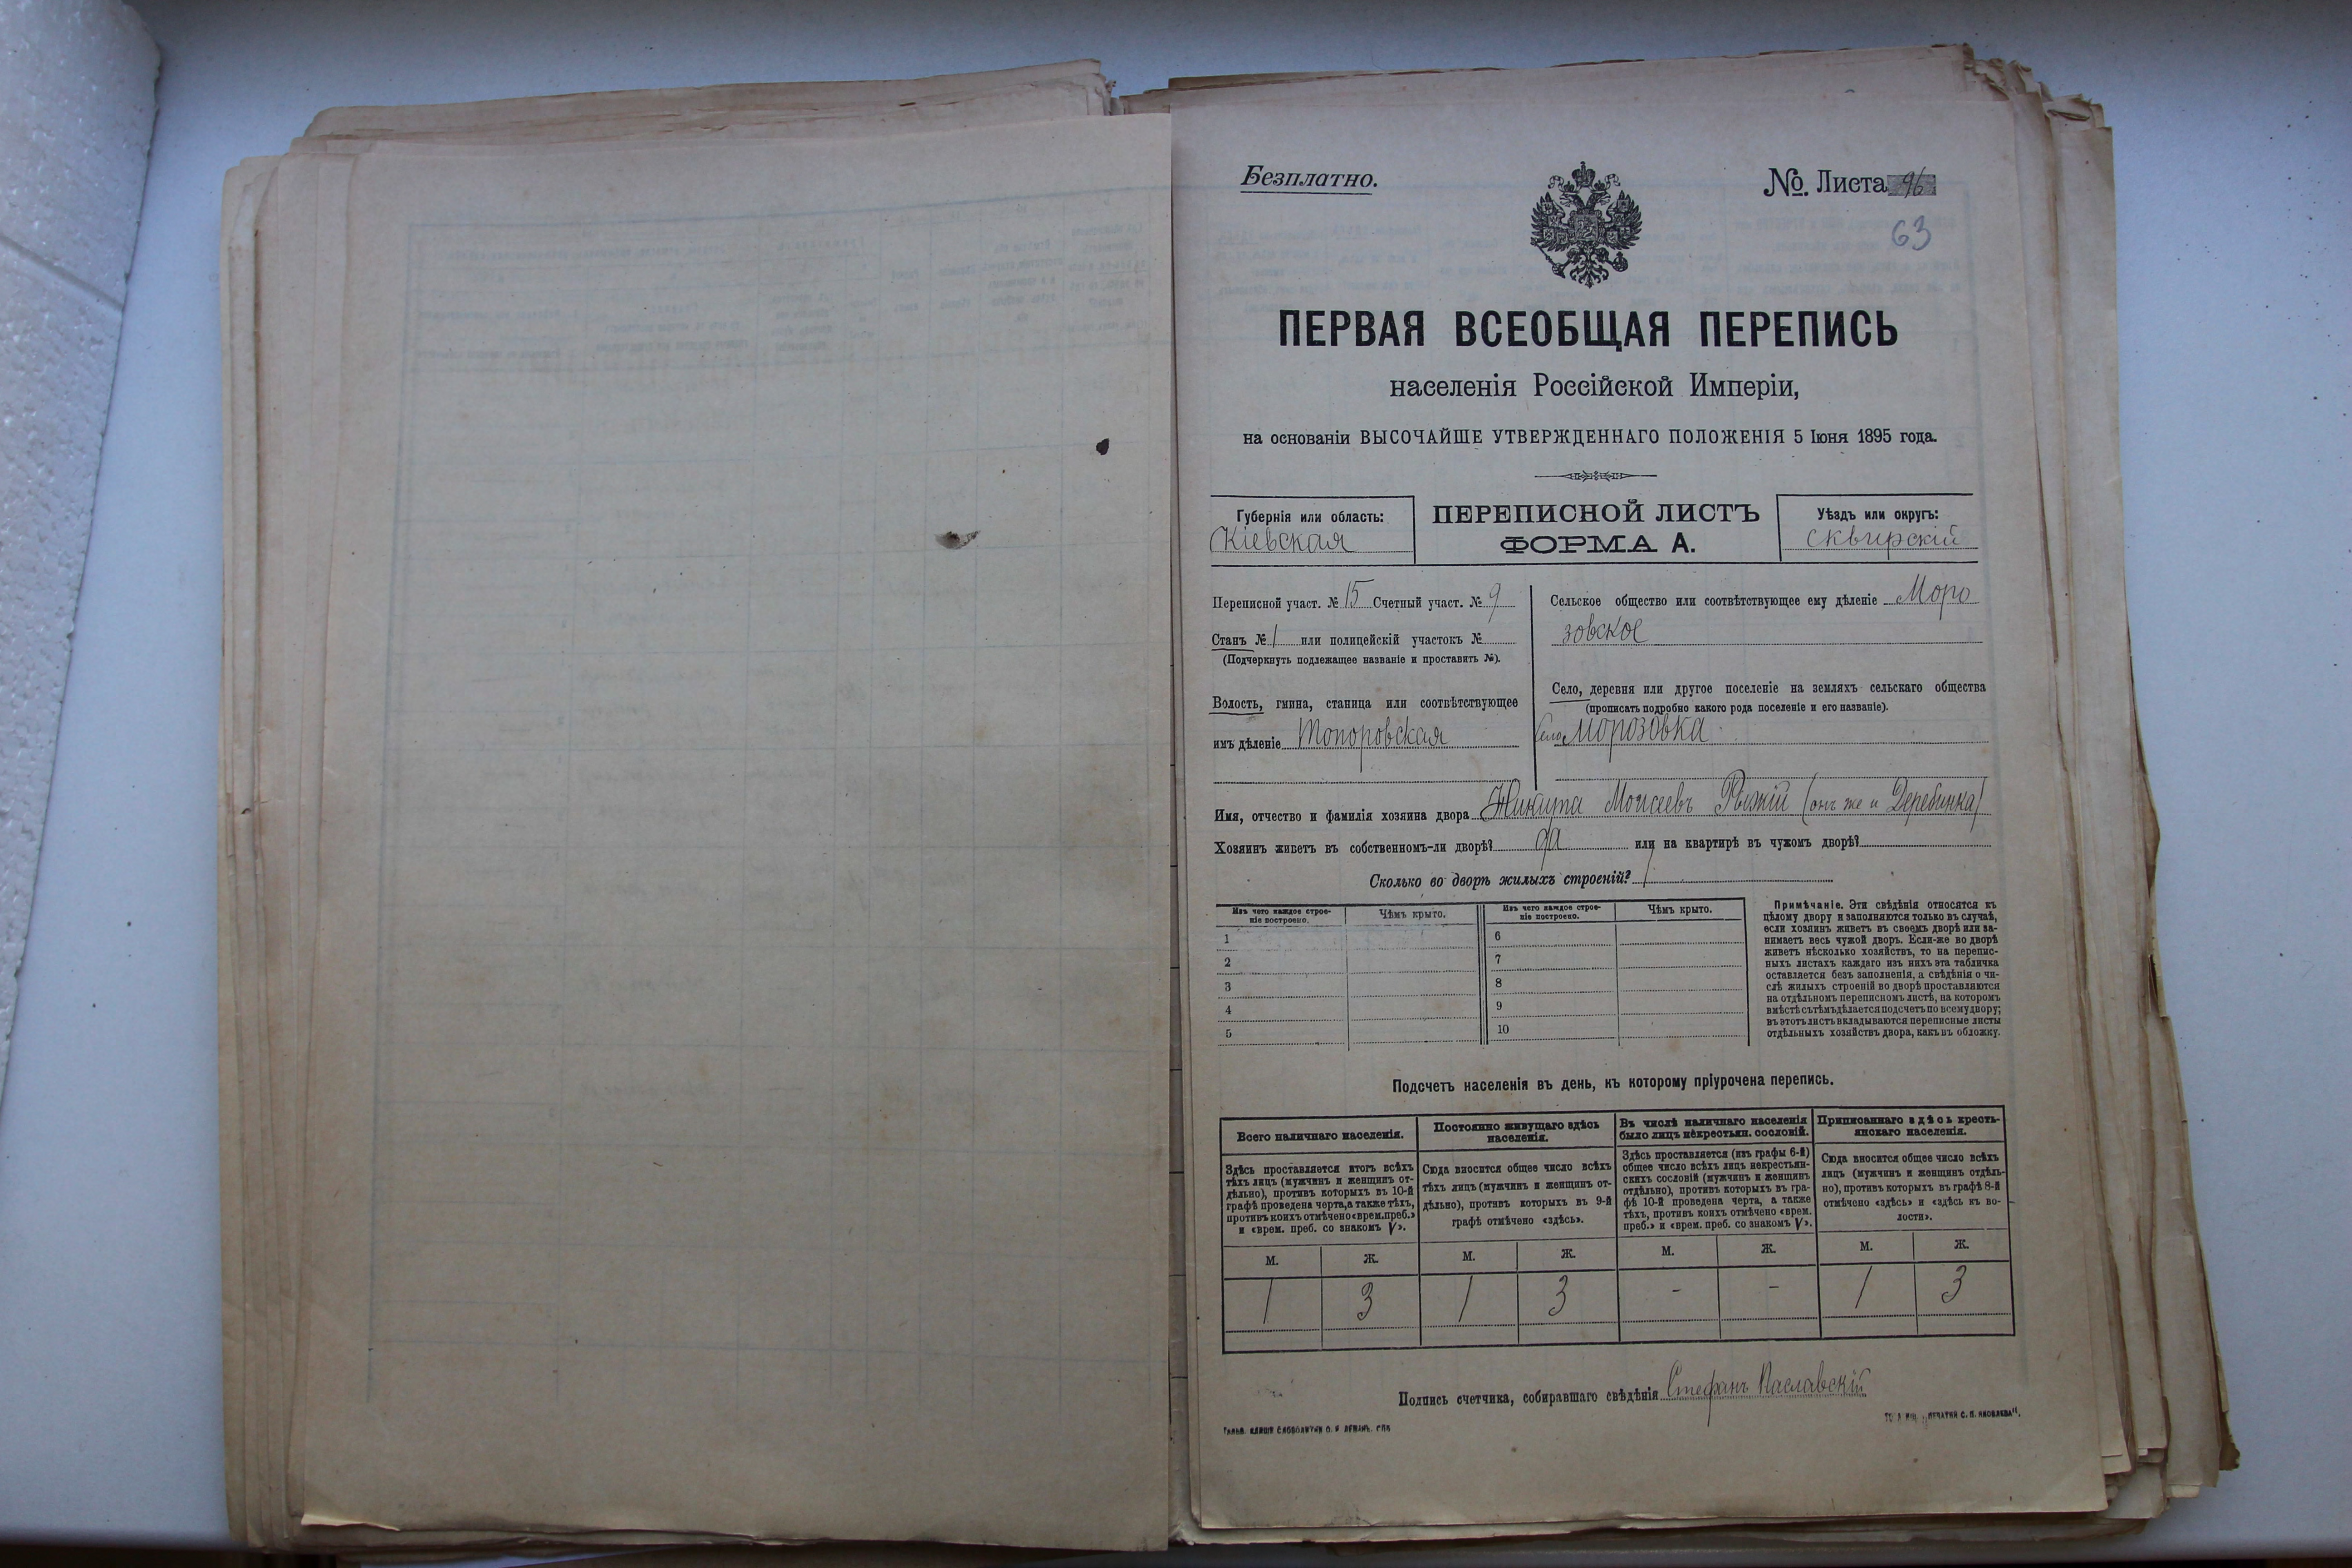 Безплатно.
№. Листа 96
63
ПЕРВАЯ ВСЕОБЩАЯ ПЕРЕПИСЬ
населенія Россійской Имперіи,
на основаніи ВЫСОЧАЙШЕ УТВЕРЖДЕННАГО ПОЛОЖЕНІЯ 5 Іюня 1895 года.
Губернія или область:
Кіевская
ПЕРЕПИСНОЙ ЛИСТЪ
ФОРМА А.
Уѣздъ или округъ:
Сквирскій
Переписной участ. № 15 Счетный участ. № 9
Станъ № 1 или полицейскій участокъ №
(Подчеркнуть подлежащее названіе и проставить №).
Волость, гмина, станица или соотвѣтствующее
имъ дѣленіе Топоровская
Сельское общество или соотвѣтствующее ему дѣленіе Моро
зовское
Село, деревня или другое поселеніе на земляхъ сельскаго общества
(прописать подробно какого рода поселеніе и его названіе).
Село Морозовка
Имя, отчество и фамилія хозяина двора Никита Моисеевъ Рыжій (онъ же и Деребинка)
Хозяинъ живетъ въ собственномъ-ли дворѣ? да или на квартирѣ въ чужомъ дворѣ?
Сколько во дворѣ жилыхъ строеній? 1
Изъ чего каждое строе-
ніе построено.
Чѣмъ крыто.
Изъ чего каждое строе-
ніе построено.
Чѣмъ крыто.
1
2
3
4
5
6
7
8
9
10
Примѣчаніе. Эти свѣдѣнія относятся къ
цѣлому двору и заполняются только въ случаѣ,
если хозяинъ живетъ въ своемъ дворѣ или за-
нимаетъ весь чужой дворъ. Если-же во дворѣ
живетъ нѣсколько хозяйствъ, то на перепис-
ныхъ листахъ каждаго изъ нихъ эта табличка
оставляется безъ заполненія, а свѣдѣнія о чи-
слѣ жилыхъ строеній во дворѣ проставляются
на отдѣльномъ переписномъ листѣ, на которомъ
вмѣстѣ съ тѣмъ дѣлается подсчетъ по всему двору;
въ этотъ листъ вкладываются переписные листы
отдѣльныхъ хозяйствъ двора, какъ въ обложку.
Подсчетъ населенія въ день, къ которому пріурочена перепись.
Всего наличнаго населенія.
Здѣсь проставляется итогъ всѣхъ
тѣхъ лицъ (мужчинъ и женщинъ от-
дѣльно), противъ которыхъ въ 10-й
графѣ проведена черта, а также тѣхъ,
противъ коихъ отмѣчено «врем. преб.»
и «врем. преб. со знакомъ V».
Постоянно живущаго здѣсь
населенія.
Сюда вносится общее число всѣхъ
тѣхъ лицъ (мужчинъ и женщинъ от-
дѣльно), противъ которыхъ въ 9-й
графѣ отмѣчено «здѣсь».
Въ числѣ наличнаго населенія
было лицъ некрестьян. сословій.
Здѣсь проставляется (изъ графы 6-й)
общее число всѣхъ лицъ некрестьян-
скихъ сословій (мужчинъ и женщинъ
отдѣльно), противъ которыхъ въ гра-
фѣ 10-й проведена черта, а также
тѣхъ, противъ коихъ отмѣчено «врем.
преб.» и «врем. преб. со знакомъ V».
Приписаннаго здѣсь кресть-
янскаго населенія.
Сюда вносится общее число всѣхъ
лицъ (мужчинъ и женщинъ отдѣль-
но), противъ которыхъ въ графѣ 8-й
отмѣчено «здѣсь» и «здѣсь въ во-
лости».
М. Ж. М. Ж. М. Ж. М. Ж.
1 3 1 3 - - 1 3
Подпись счетчика, собиравшаго свѣдѣнія Стефанъ Паславскій